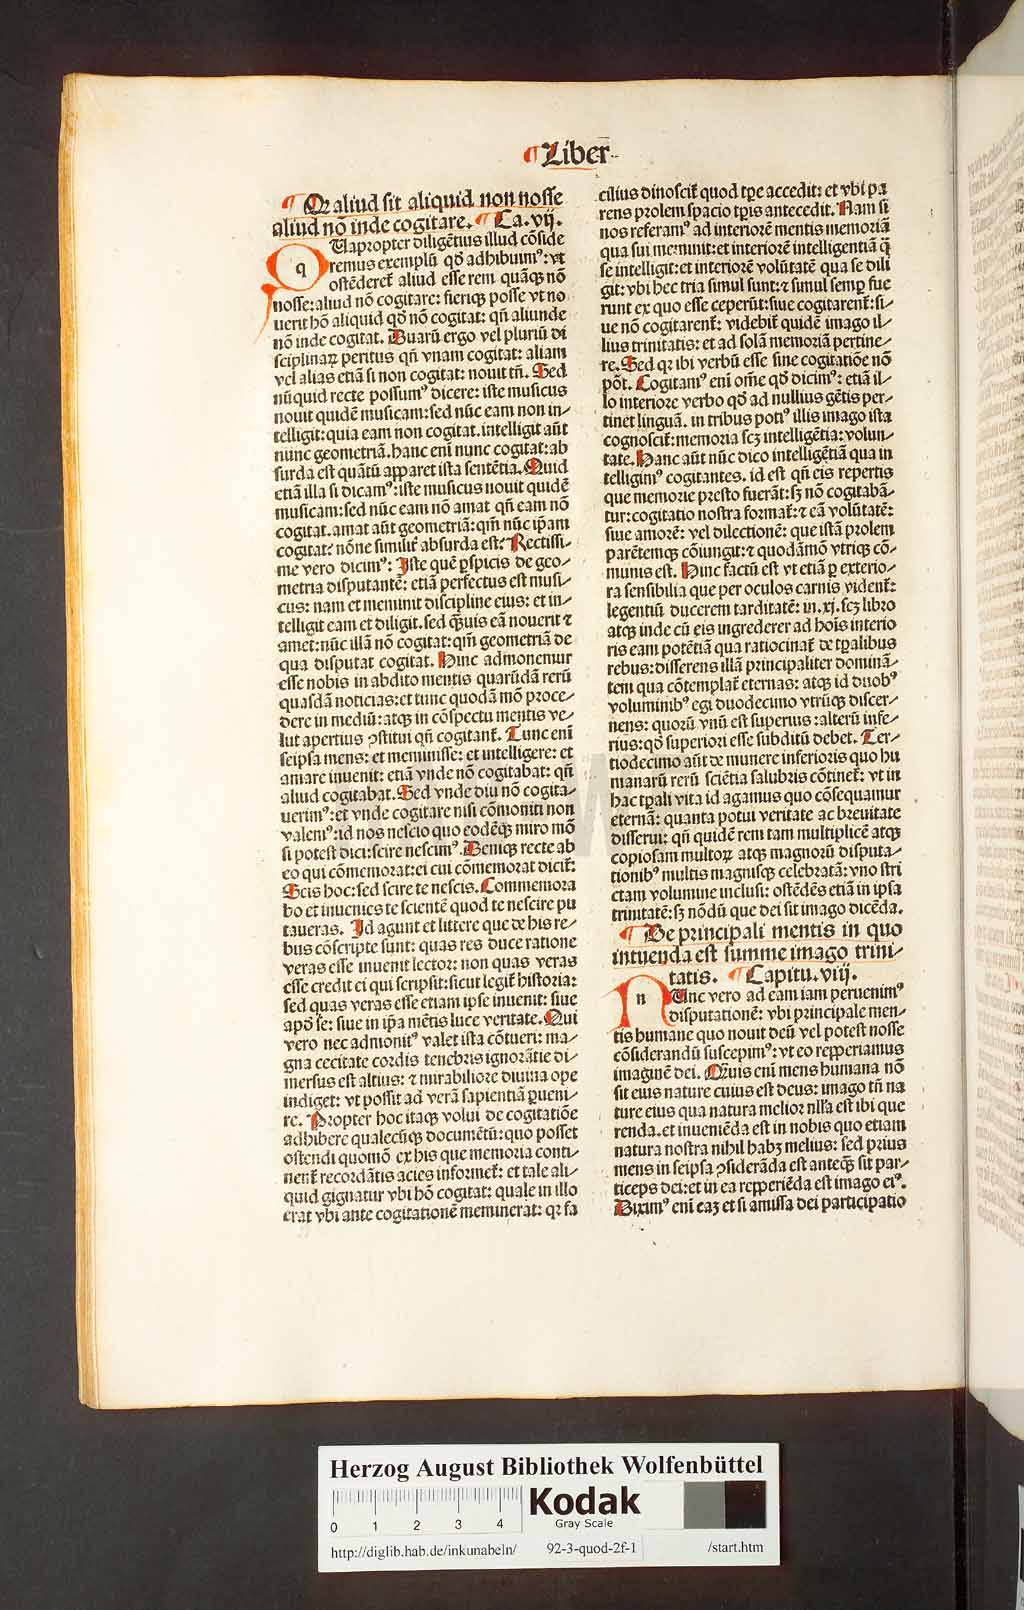 ¶ Liber
¶ Qꝛ aliud sit aliquid non nosse
aliud nō inde cogitare. ¶ Ca. vij.
q Uapropter diligētius illud cōside
remus exemplū qđ adhibuimꝰ: vt
ostēderet᷑ aliud esse rem quāqꝫ nō
nosse: aliud nō cogitare: fieriqꝫ posse vt no
uerit hō aliquid qđ nō cogitat: qn̄ aliunde
nō inde cogitat. Duarū ergo vel pluriū di
sciplinaꝝ peritus qn̄ vnam cogitat: aliam
vel alias etiā si non cogitat: nouit tn̄. Sed
nūquid recte possumꝰ dicere: iste musicus
nouit quidē musicam: sed nūc eam non in⸗
telligit: quia eam non cogitat. intelligit aūt
nunc geometriā. hanc eni nunc cogitat: ab
surda est quātū apparet ista sentētia. Quid
etiā illa si dicamꝰ: iste musicus nouit quidē
musicam: sed nūc eam nō amat qn̄ eam nō
cogitat. amat aūt geometriā: qm̄ nūc ip̄am
cogitat: nōne similit᷑ absurda est? Rectissi⸗
me vero dicimꝰ: Iste quē ꝑspicis de geo⸗
metria disputantē: etiā perfectus est musi⸗
cus: nam et meminit discipline eius: et in⸗
telligit eam et diligit. sed qͣꝫuis eā nouerit ⁊
amet: nūc illā nō cogitat: qm̄ geometriā de
qua disputat cogitat. Hinc admonemur
esse nobis in abdito mentis quarūdā rerū
quasdā noticias: et tunc quodā mō proce⸗
dere in mediū: atqꝫ in cōspectu mentis ve⸗
lut apertius ꝯstitui qn̄ cogitant᷑. Tunc eni
seipsa mens: et meminisse: et intelligere: et
amare inuenit: etiā vnde nō cogitabat: qn̄
aliud cogitabat. Sed vnde diu nō cogita⸗
uerimꝰ: et vnde cogitare nisi cōmoniti non
valemꝰ: id nos nescio quo eodēqꝫ miro mō
si potest dici: scire nescimꝰ. Deniqꝫ recte ab
eo qui cōmemorat: ei cui cōmemorat dicit᷑:
Scis hoc: sed scire te nescis. Commemora
bo et inuenies te scientē quod te nescire pu
taueras. Id agunt et littere que de his re⸗
bus cōscripte sunt: quas res duce ratione
veras esse inuenit lector: non quas veras
esse credit ei qui scripsit: sicut legit᷑ historia:
sed quas veras esse etiam ipse inuenit: siue
apđ se: siue in ip̄a mētis luce veritate. Qui
vero nec admonitꝰ valet ista cōtueri: ma⸗
gna cecitate cordis tenebris ignorātie di⸗
mersus est altius: ⁊ mirabiliore diuina ope
indiget: vt possit ad verā sapientiā ꝑueni⸗
re. Propter hoc itaqꝫ volui de cogitatiōe
adhibere qualecūqꝫ documētū: quo posset
ostendi quomō ex his que memoria conti⸗
nent᷑ recordātis acies informet᷑: et tale ali⸗
quid gignatur vbi hō cogitat: quale in illo
erat vbi ante cogitationē meminerat: qꝛ fa
cilius dinoscit᷑ quod tp̄e accedit: et vbi pa
rens prolem spacio tp̄is antecedit. Nam si
nos referamꝰ ad interiorē mentis memoriā
qua sui meminit: et interiorē intelligentiā q̄
se intelligit: et interiorē volūtatē qua se dili
git: vbi hec tria simul sunt: ⁊ simul semꝑ fue
runt ex quo esse ceperūt: siue cogitarent᷑: si⸗
ue nō cogitarent᷑: videbit᷑ quidē imago il⸗
lius trinitatis: et ad solā memoriā pertine⸗
re. Sed qꝛ ibi verbū esse sine cogitatiōe nō
pōt. Cogitamꝰ eni om̄e qđ dicimꝰ: etiā il⸗
lo interiore verbo qđ ad nullius gētis per⸗
tinet linguā. in tribus potiꝰ illis imago ista
cognoscit᷑: memoria scꝫ intelligētia: volun⸗
tate. Hanc aūt nūc dico intelligētiā qua in
telligimꝰ cogitantes. id est qn̄ eis repertis
que memorie presto fuerāt: sꝫ nō cogitabā⸗
tur: cogitatio nostra format᷑: ⁊ eā volūtatē:
siue amorē: vel dilectionē: que istā prolem
parētemqꝫ cōiungit: ⁊ quodāmō vtriqꝫ cō⸗
munis est. Hinc factū est vt etiā ꝑ exterio⸗
ra sensibilia que per oculos carnis vident᷑:
legentiū ducerem tarditatē: in. xj. scꝫ libro
atqꝫ inde cū eis ingrederer ad hoīs interio
ris eam potētiā qua ratiocinat᷑ de tp̄alibus
rebus: differens illā principaliter dominā⸗
tem qua cōtemplat᷑ eternas: atqꝫ id duobꝰ
voluminibꝰ egi duodecimo vtrūqꝫ discer⸗
nens: quorū vnū est superius: alterū infe⸗
rius: qđ superiori esse subditū debet. Ter⸗
tiodecimo aūt de munere inferioris quo hu
manarū rerū sciētia salubris cōtinet᷑: vt in
hac tp̄ali vita id agamus quo cōsequamur
eternā: quanta potui veritate ac breuitate
disserui: qn̄ quidē rem tam multiplicē atqꝫ
copiosam multoꝝ atqꝫ magnorū disputa⸗
tionibꝰ multis magnisqꝫ celebratā: vno stri
ctam volumine inclusi: ostēdēs etiā in ipsa
trinitatē: sꝫ nōdū que dei sit imago dicēda.
¶ De principali mentis in quo
intuenda est summe imago trini⸗
tatis. ¶ Capitu. viij.
n Unc vero ad eam iam peruenimꝰ
disputationē: vbi principale men⸗
tis humane quo nouit deū vel potest nosse
cōsiderandū suscepimꝰ: vt eo repperiamus
imaginē dei. Quis eni mens humana nō
sit eius nature cuius est deus: imago tn̄ na
ture eius qua natura melior nlła est ibi que
renda. et inueniēda est in nobis quo etiam
natura nostra nihil habꝫ melius: sed prius
mens in seipsa ꝯsiderāda est anteqͣꝫ sit par⸗
ticeps dei: et in ea repperiēda est imago eiꝰ.
Diximꝰ eni eaꝫ et si amissa dei participatio
Herzog August Bibliothek Wolfenbüttel
0 1 2 3 4
Kodak
Gray Scale
http://diglib.hab.de/inkunabeln/ 92-3-quod-2f-1 /start.htm